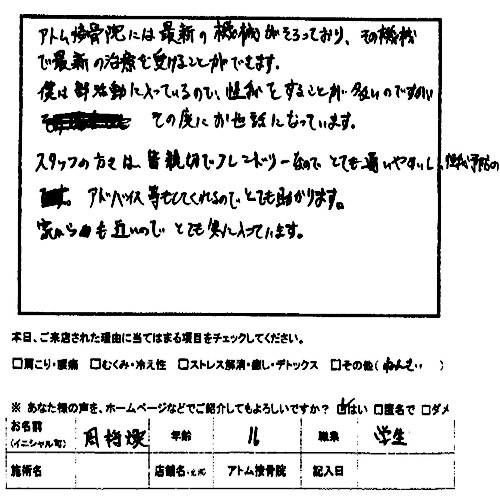 アトム接骨院には最新の機械がそろっており、その機械
で最新の治療を受けることができます。
僕は部活動に入っているので、怪我をすることが多いのですが
その度にお世話になっています。
スタッフの方々は、皆親切でフレンドリーなのでとても通いやすいし、怪我予防の
アドバイス等もしてくれるのでとても助かります。
家からも近いのでとても気に入っています。
本日、ご来店された理由に当てはまる項目をチェックしてください。
□肩こり・腰痛 □むくみ・冷え性 □ストレス解消・癒し・デトックス □その他(ねんざ)
※ あなた様の声を、ホームページなどでご紹介してもよろしいですか? ☑はい □匿名で □ダメ
お名前 年齢 16 職業 学生
(イニシャル可)
施術名 店舗名 アトム接骨院 記入日